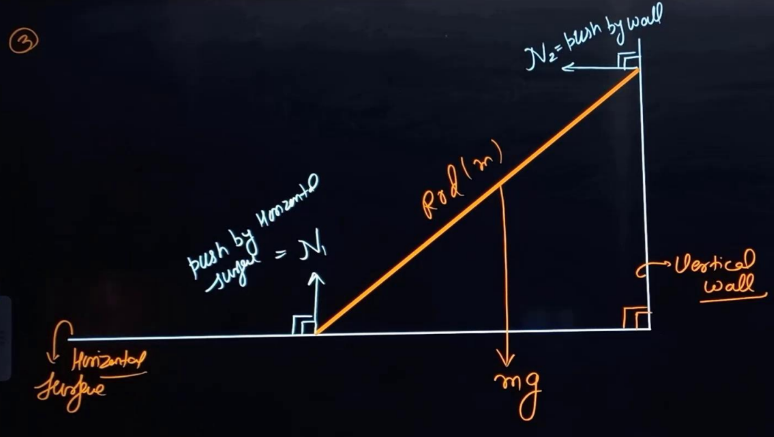 3
N₂ = push by wall
Rod (m)
push by Horizontal
surface = N₁
Vertical
wall
Horizontal
surface
mg